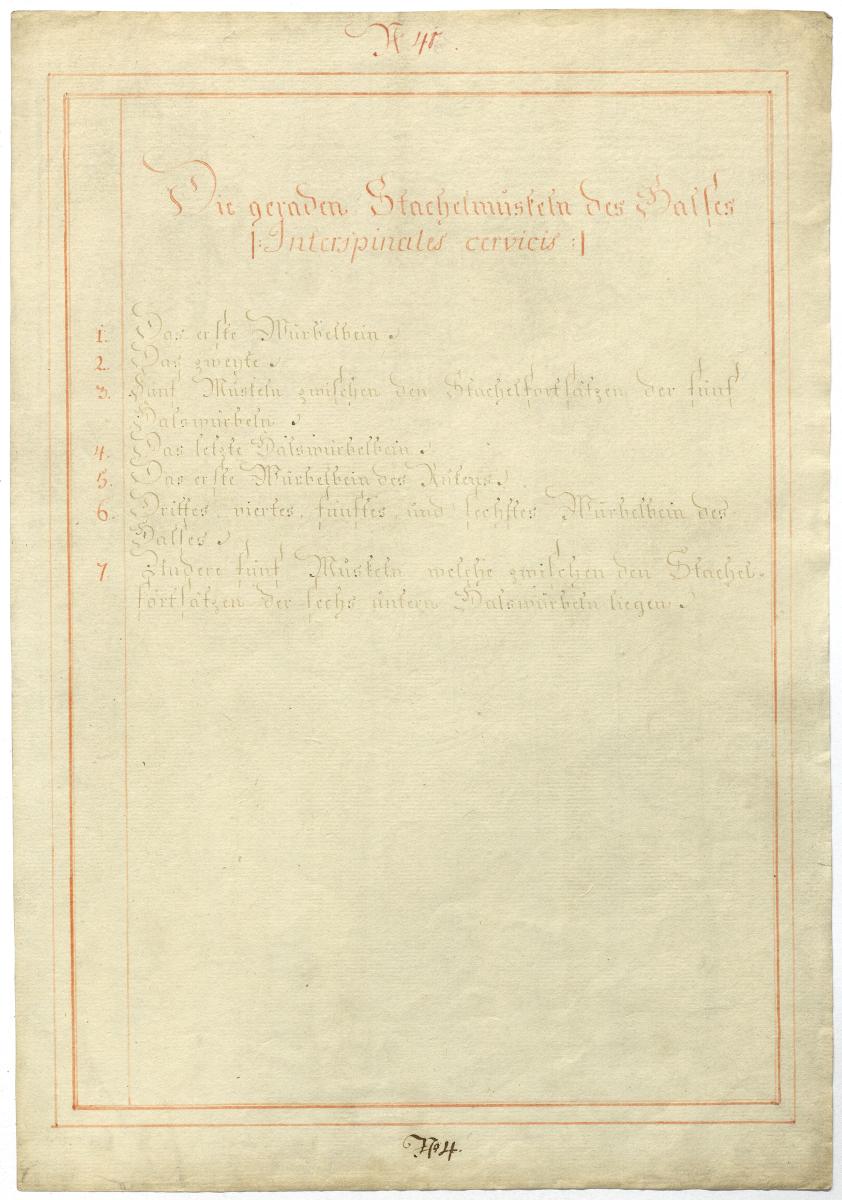 N 48.
Die geraden Stachelmuskeln des Halses
|: Interspinales cervicis :|
1. Das erste Würbelbein.
2. Das zweyte.
3. Fünf Muskeln zwischen den Stachelfortsätzen der fünf
Halswürbeln.
4. Das letzte Halswürbelbein.
5. Das erste Würbelbein des Rükens.
6. Drittes, viertes, fünftes, und sechstes Würbelbein des
Halses.
7. Andere fünf Muskeln welche zwischen den Stachel-
fortsätzen der sechs untern Halswürbeln liegen.
No 4.